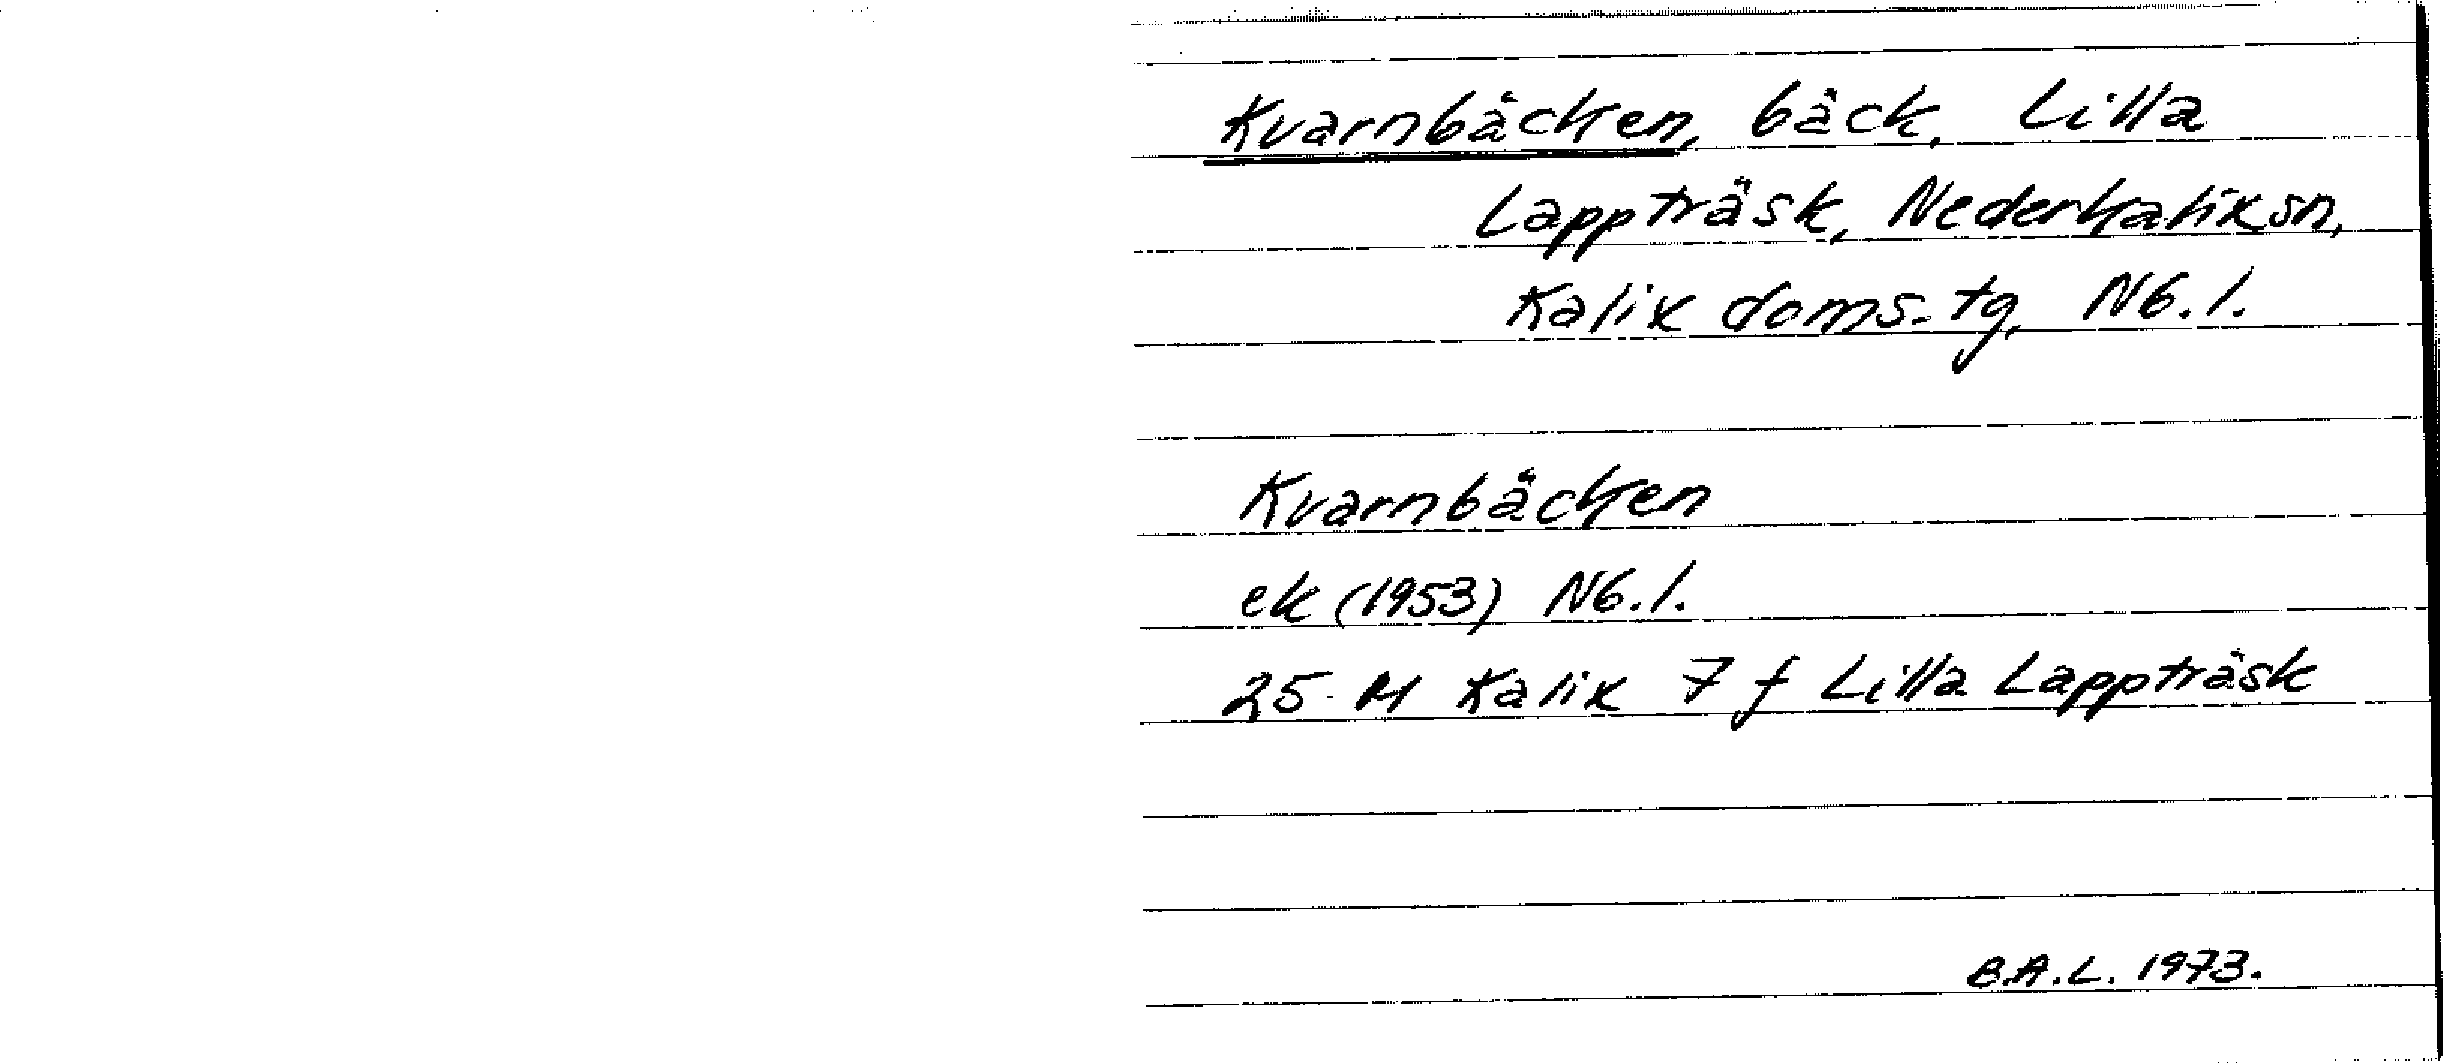 Kvarnbäcken, bäck, Lilla
Lappträsk, Nederkalix sn,
Kalix doms. tg, Nb. l.
Kvarnbäcken
ek (1953) Nb. l.
25 M Kalix 7 f Lilla Lappträsk
B.A.L. 1973.